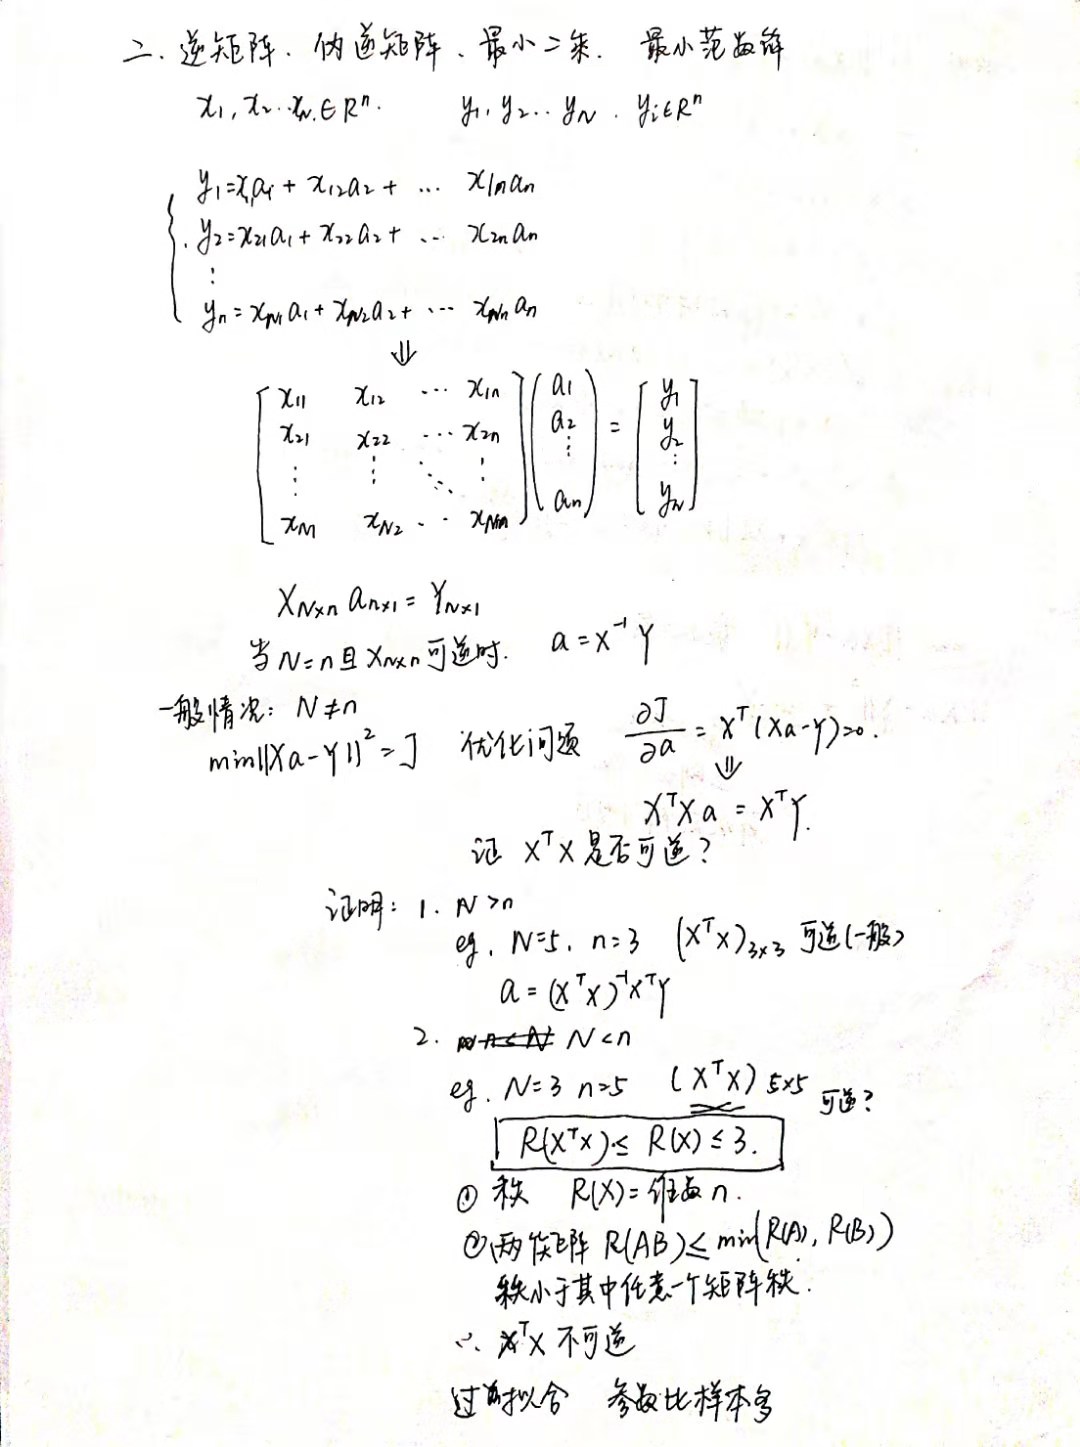 二、逆矩阵、伪逆矩阵、最小二乘. 最小范数解
x₁, x₂…x_N. ∈ Rⁿ. y₁, y₂… y_N . y_i∈Rⁿ
y₁=x₁₁a₁ + x₁₂a₂ + … x₁ₙaₙ
y₂=x₂₁a₁ + x₂₂a₂ + … x₂ₙaₙ
⋮
yₙ = x_N₁a₁ + x_N₂a₂ + … x_Nₙaₙ
⇓
[ x₁₁ x₁₂ … x₁ₙ ] ( a₁ ) = [ y₁ ]
[ x₂₁ x₂₂ … x₂ₙ ] ( a₂ ) [ y₂ ]
[ ⋮ ⋮ ⋱ ⋮ ] ( ⋮ ) [ ⋮ ]
[ x_N₁ x_N₂ … x_Nₙ ] ( aₙ ) [ y_N ]
X_N×n a_n×1 = Y_N×1
当 N=n 且 X_N×n 可逆时. a = X⁻¹ Y
一般情况: N≠n
min||Xa-Y||² = J 优化问题 ∂J/∂a = Xᵀ(Xa-Y)=0.
⇓
XᵀXa = XᵀY.
证 XᵀX 是否可逆?
证明: 1. N>n
eg. N=5, n=3 (XᵀX)₃ₓ₃ 可逆(一般)
a = (XᵀX)⁻¹XᵀY
2. N<n
eg. N=3 n=5 (XᵀX) 5×5 可逆?
R(XᵀX) ≤ R(X) ≤ 3.
① 秩 R(X)=维数 n.
② 两矩阵 R(AB) ≤ min(R(A), R(B))
秩小于其中任意一个矩阵秩.
∴ XᵀX 不可逆
过拟合 参数比样本多